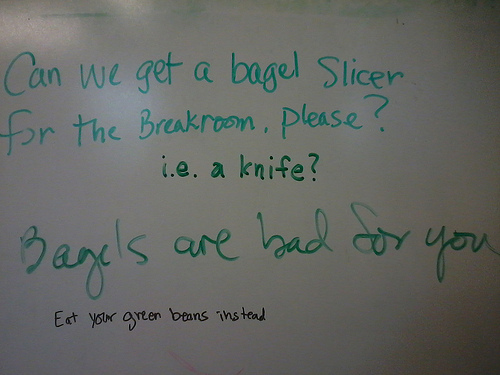 Can we get a bagel Slicer
for the Breakroom, please?
i.e. a knife?
Bagel's are bad for you
Eat your green beans instead